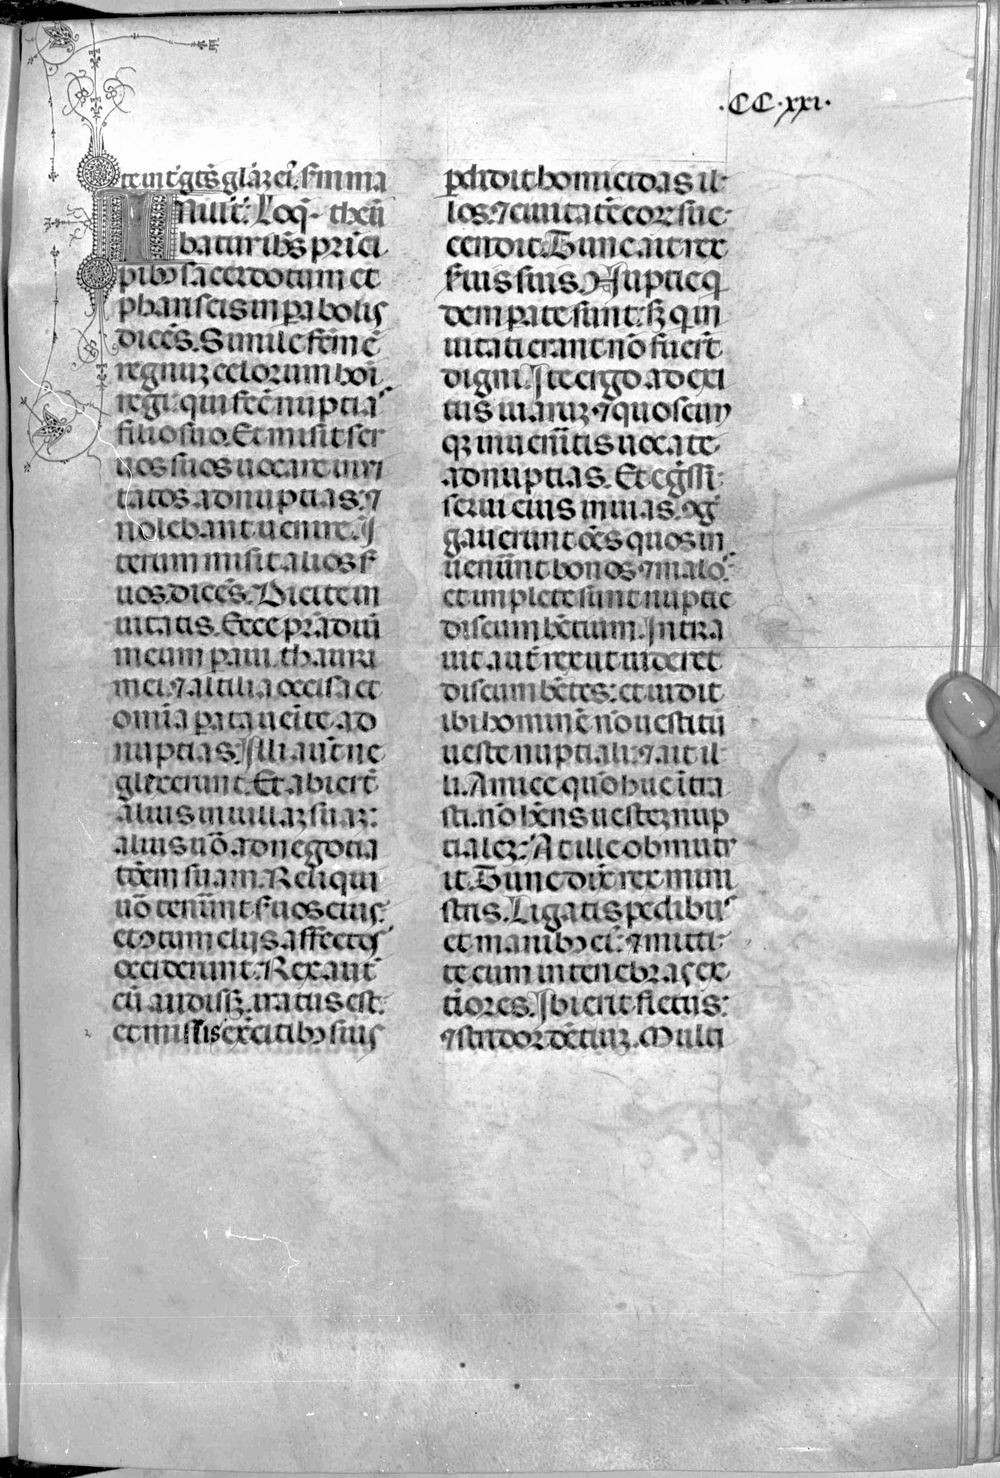 ·CC·xxi·
te int̄ gēs glāz ei. S̄m ma
In illr̄: Loq̄ theū
batur ihs̄ prīci
pibꝰ sacerdotum et
phariseis in parabolis
dicēs. Simile fcm̄ ē
regnuꝫ celorum hoī
regi: qui fec̄ nuptiaˢ
filio suo. Et misit ser
uos suos uocare inui
tatos ad nuptias: ⁊
nolebant uenire. I
terum misit alios s̄
uos dicēs. Dicite in
uitatis. Ecce prādiū
meum paui thauri
mei ⁊ altilia occisa et
omīa parata ueīte ad
nuptias. Illi aut̄ ne
glexerunt. Et abierūt
alius in uillaꝫ suaꝫ:
alius uō ad negocia
tōem suam. Reliqui
uō tenūunt s̄uos eius:
et ꝯtumeliis affectos
occiderunt. Rex aut̄
cū audisꝫ iratus est:
et missis exercitibꝰ suis
pdidit homicidas il
los: ⁊ ciuitatē eoꝝ suc
cendit. Tunc ait rex
s̄uis suis. Nuptie q̄
dem parate sunt: sꝫ qui in
uitati erant nō fuert̄
digni. Ite ergo ad exi
tus uiaruꝫ ⁊ quoscuꝫ
qꝫ inuenītis uocate
ad nuptias. Et egss̄i
serui eius in uias: ꝯḡ
gauerunt oēs quos in
uenūnt bonos ⁊ maloˢ:
et implete sunt nuptie
discumbētium. Intra
uit aut̄ rex ut uideret
discumbētes: et uidit
ibi hominē nō uestitū
ueste nuptiali: ⁊ ait il
li. Amice quō huc ītra
sti: nō hn̄s uesteꝫ nup
tialeꝫ: At ille obmutu
it. Tunc dix̄ rex mini
stris. Ligatis pedibuˢ
et manibꝰ eiꝰ: ⁊ mitti
te eum in tenebras ex
tiores. Ibi erit fletus:
⁊ stridor dētiuꝫ. Multi